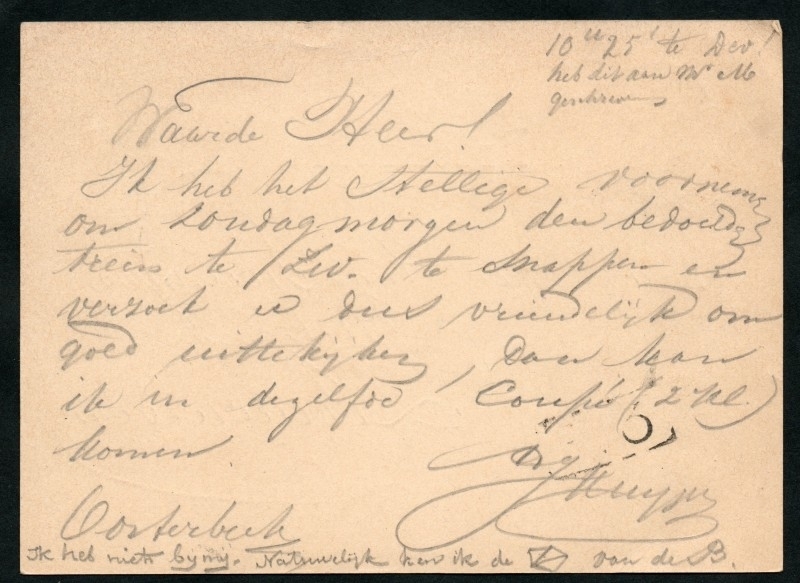 10 u 25' te Dev!
heb dit aan Mr M
geschreven
Waarde Heer!
Ik heb het Stellige voornemen
om Zondagmorgen den bedoelden
trein te Zev. te snappen en
verzoek u dus vriendelijk om
goed uittekijken, Dan kan
ik in dezelfde Coupé (2 Kl.)
komen
Oosterbeek
Ik heb niets bij mij. Natuurlijk ken ik de van de B.